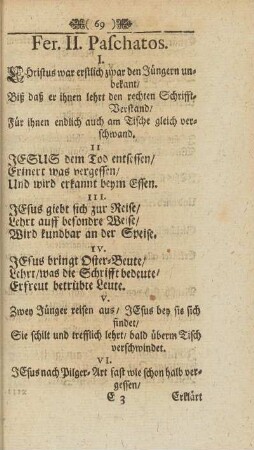 ( 69 )
Fer. II. Paschatos.
I.
CHristus war erstlich zwar den Jüngern un-
bekant/
Biß daß er ihnen lehrt den rechten Schrifft-
Verstand/
Für ihnen endlich auch am Tische gleich ver-
schwand.
II
JESUS dem Tod entsessen/
Erinert was vergessen/
Und wird erkannt beym Essen.
III.
JEsus giebt sich zur Reise/
Lehrt auff besondre Weise/
Wird kundbar an der Speise.
IV.
JEsus bringt Oster-Beute/
Lehrt/was die Schrifft bedeute/
Erfreut betrübte Leute.
V.
Zwey Jünger reisen aus/ JEsus bey sis sich
findet/
Sie schilt und trefflich lehrt/ bald überm Tisch
verschwindet.
VI.
JEsus nach Pilger-Art fast wie schon halb ver-
gessen/
E 3 Erklärt